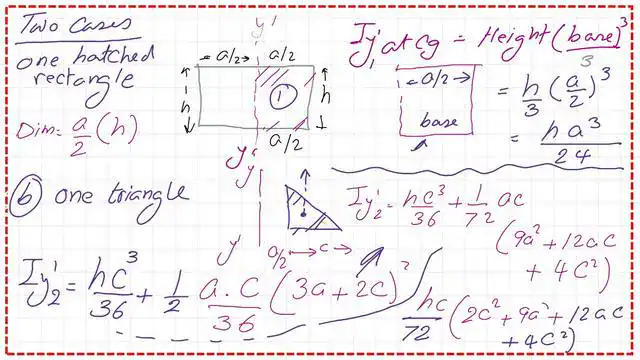 Two Cases
one hatched
rectangle
Dim = a/2 (h)
y'
a/2 a/2
h
1
h
a/2
y'
Iy'1 at Cg = Height (base)^3
3
a/2
base
= h/3 (a/2)^3
= ha^3/24
b one triangle
y
y'
a/2 → c →
Iy'2 = hc^3/36 + 1/72 ac
(9a^2 + 12ac
+ 4c^2)
Iy'2 = hc^3/36 + 1/2 a.c/36 (3a+2c)^2
hc/72 (2c^2 + 9a^2 + 12ac
+ 4c^2)